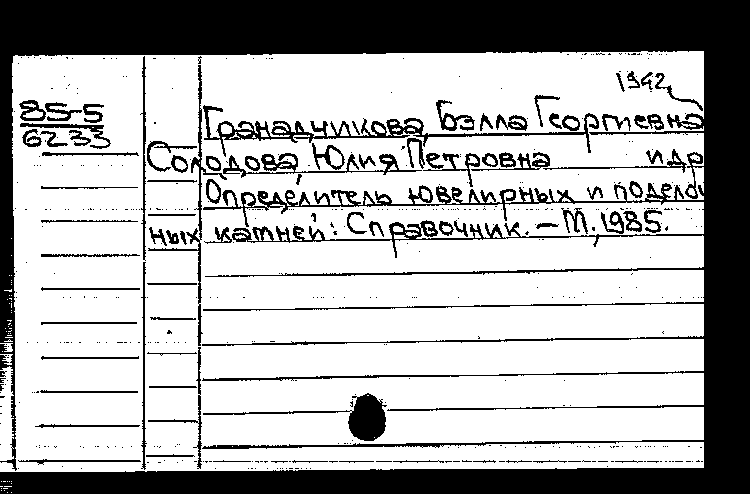 1942
85-5
6233
Гранадчикова, Бэлла Георгиевна
Солодова, Юлия Петровна и др
Определитель ювелирных и поделоч
ных камней: Справочник. – М., 1985.